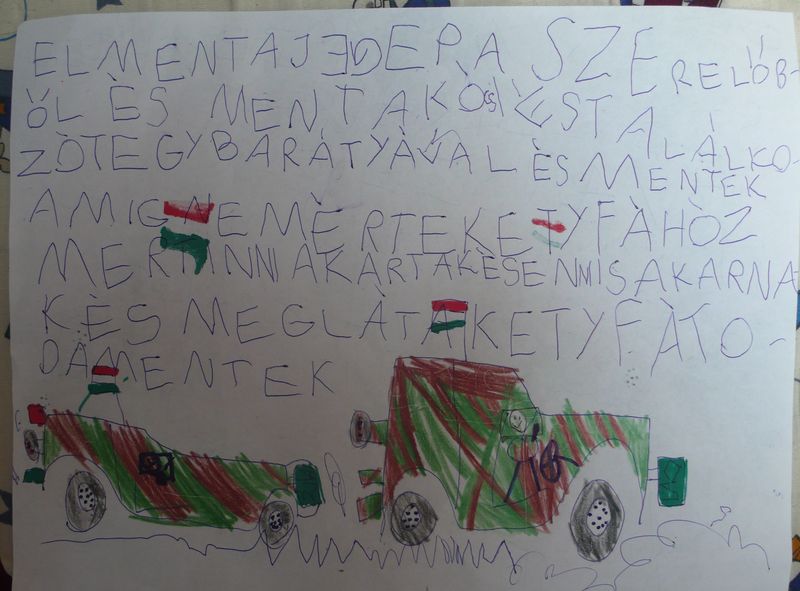 EL MENT A JEGDERA SZERELŐB-
ŐL ÈS MENTAK ÉS TALÁLKO-
ZÒTEGY BARÁTYÁVAL ÈS MENTEK
AMIG NEMÈRTEK ETYFÀHÒZ
MERTINNIAKARTAKÈSENNISAKARNA
KÈS MEGLÀTÀK ETYFÀTO-
DAMENTEK